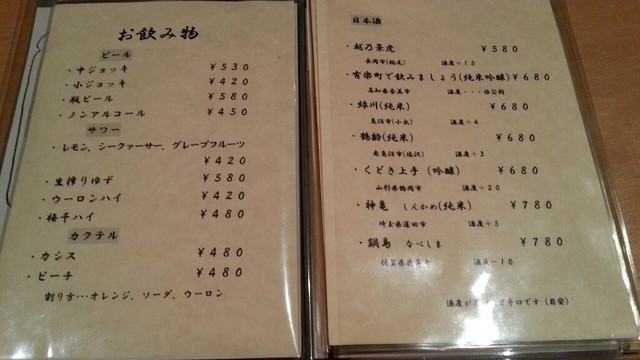 お飲み物
ビール
・中ジョッキ ¥530
・小ジョッキ ¥420
・瓶ビール ¥580
・ノンアルコール ¥450
サワー
・レモン、シークァーサー、グレープフルーツ
¥420
・生搾りゆず ¥580
・ウーロンハイ ¥420
・梅干ハイ ¥480
カクテル
・カシス ¥480
・ピーチ ¥480
割り方…オレンジ、ソーダ、ウーロン
日本酒
・越乃景虎 ¥580
長岡市(栃尾) 酒度+15
・有楽町で飲みましょう(純米吟醸) ¥680
高知県香美市 酒度・・・非公開
・緑川(純米) ¥680
魚沼市(小出) 酒度+4
・鶴齢(純米) ¥680
南魚沼市(塩沢) 酒度+3
・くどき上手(吟醸) ¥680
山形県鶴岡市 酒度+20
・神亀 しんかめ(純米) ¥780
埼玉県蓮田市 酒度+5
・鍋島 なべしま ¥780
佐賀県 酒度-10
酒度が ど辛口です(目安)